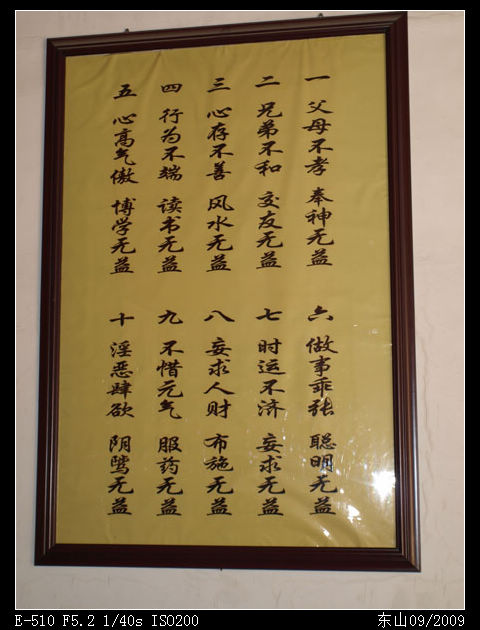 一 父母不孝 奉神无益
二 兄弟不和 交友无益
三 心存不善 风水无益
四 行为不端 读书无益
五 心高气傲 博学无益
六 做事乖张 聪明无益
七 时运不济 妄求无益
八 妄求人财 布施无益
九 不惜元气 服药无益
十 淫恶肆欲 阴骘无益
E-510 F5.2 1/40s ISO200
东山09/2009